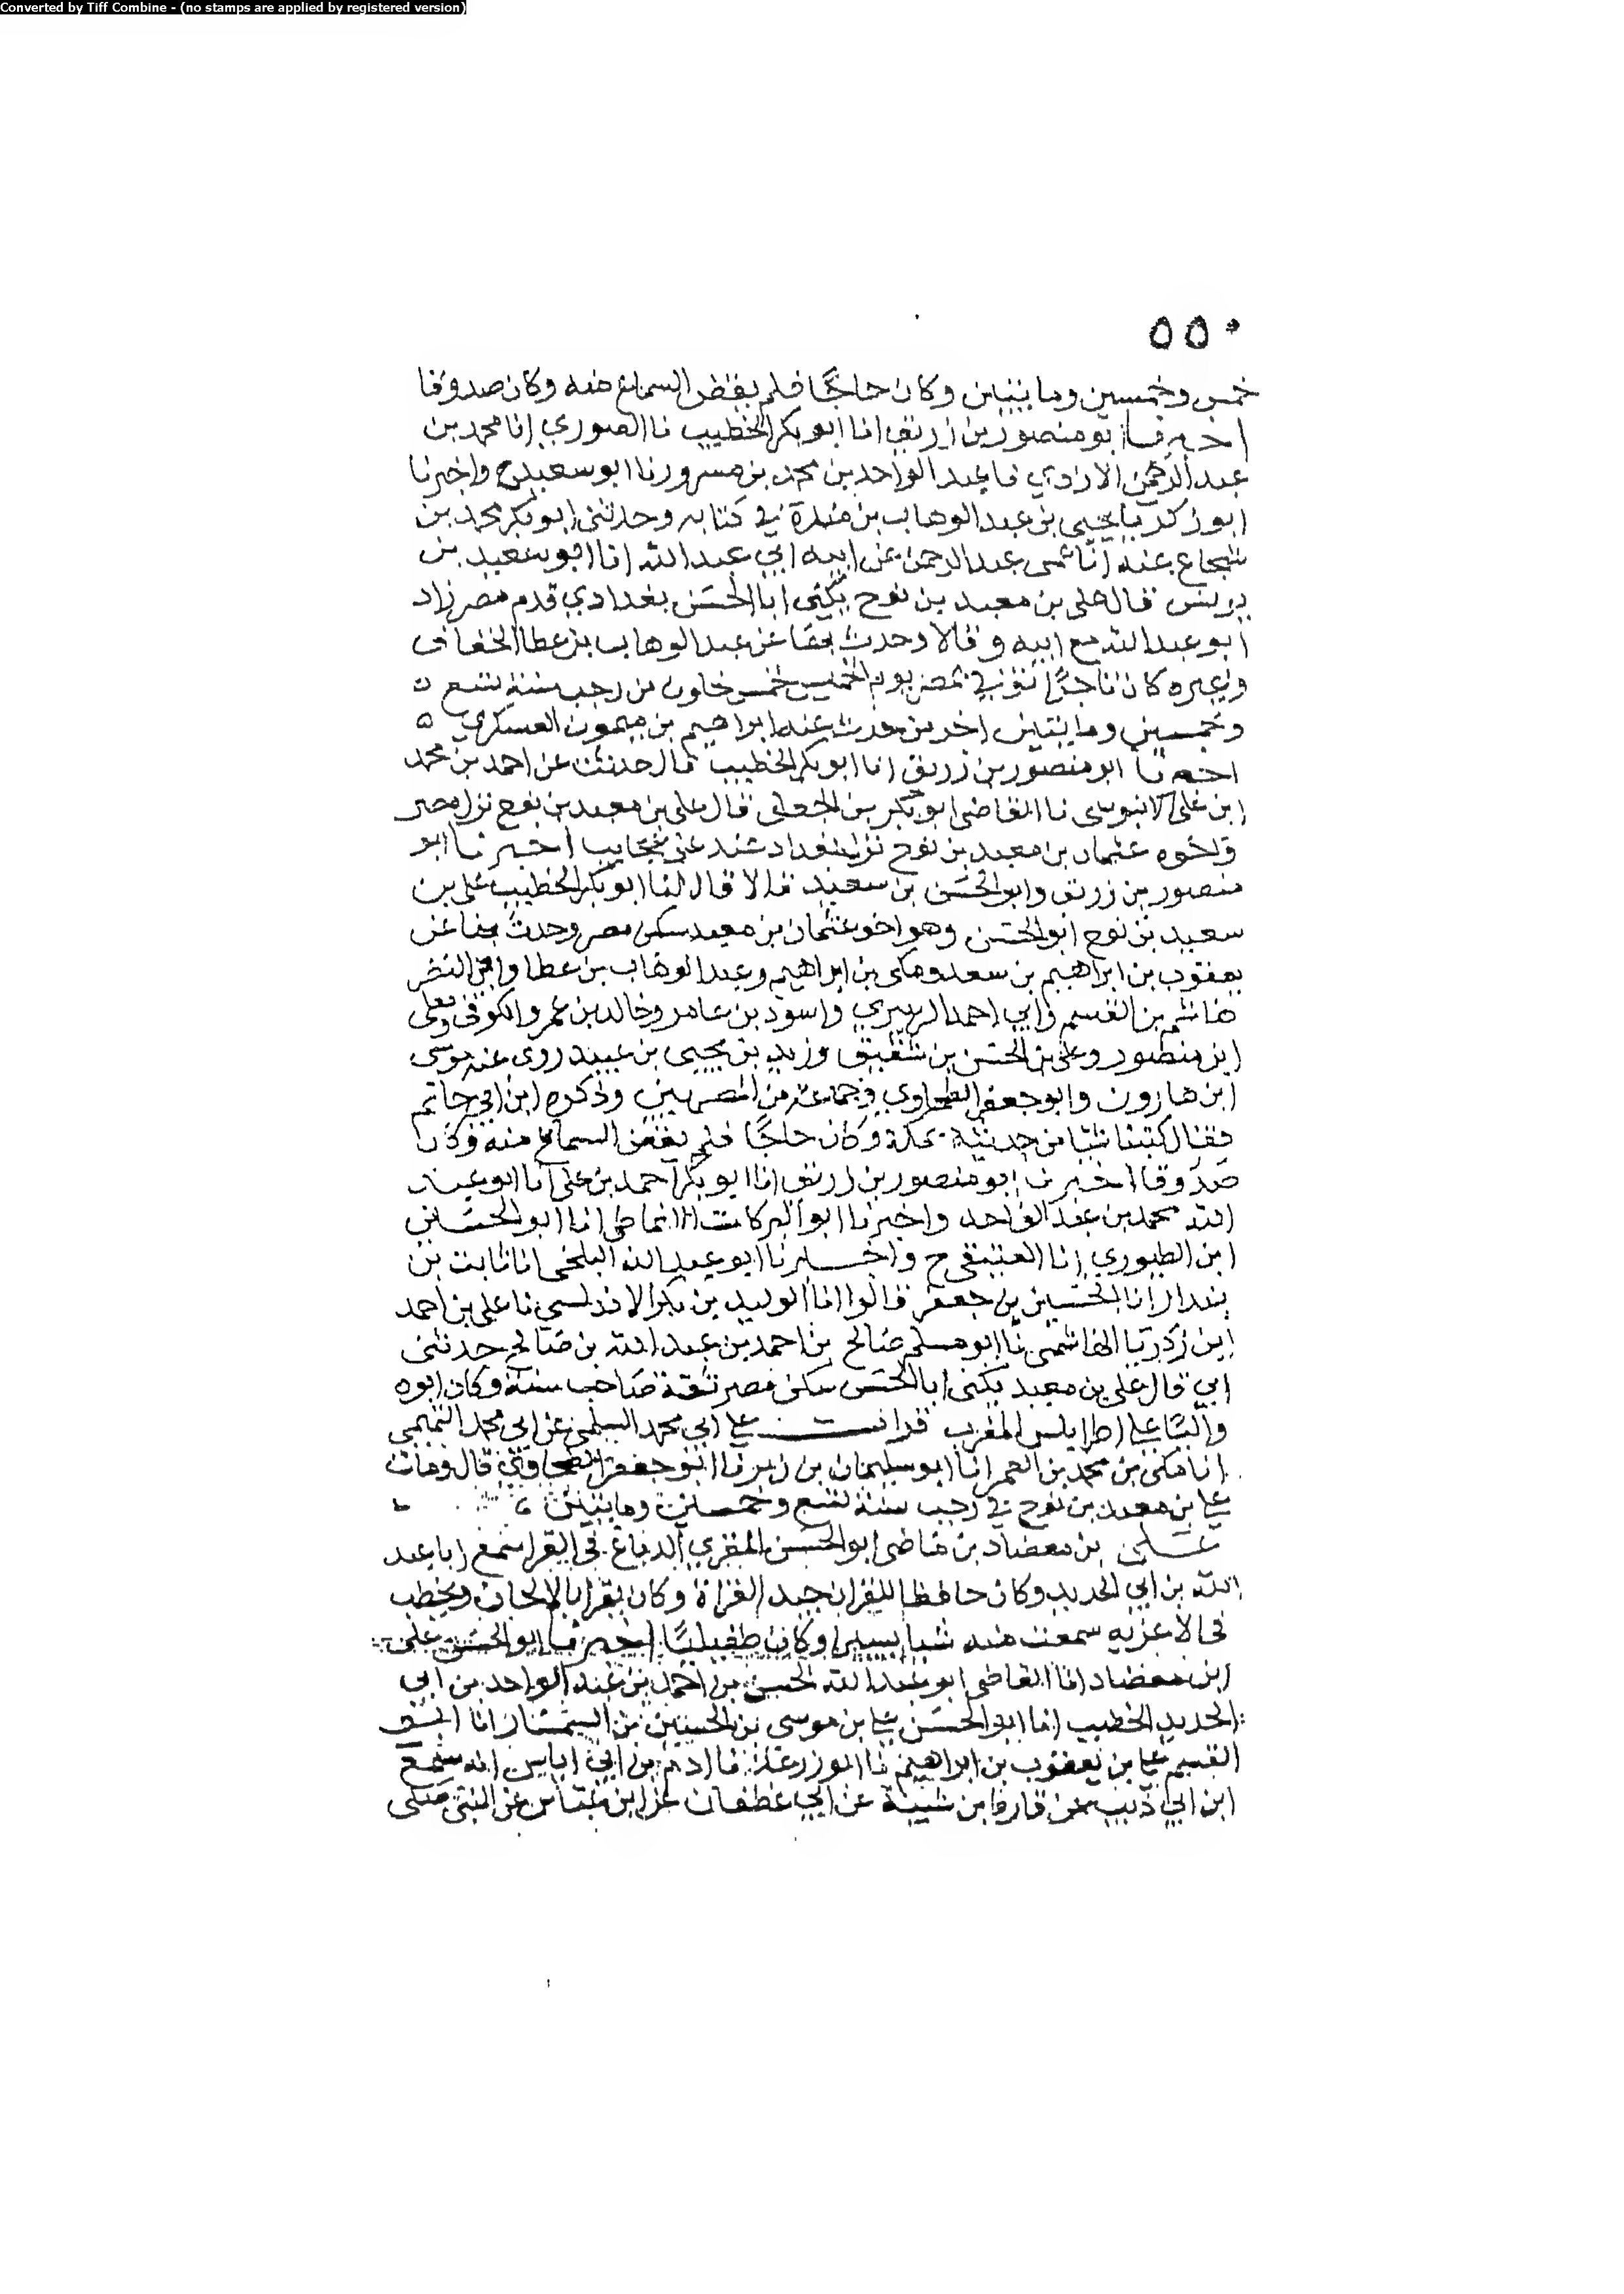 Converted by Tiff Combine - (no stamps are applied by registered version)
٥٥٠
خمس وخمسين وماينين وكان حاجا فلم يقض السماع منه وكان صدوقا
اخبرنا ابو منصور بن زريق انا ابو بكر الخطيب نا الصوري انا محمد بن
عبد الرحمن الازدي نا عبد الواحد بن محمد بن مسرور نا ابو سعيد ح واخبرنا
ابو زكريا يحيى بن عبد الوهاب بن مندة في كتابه وحدثني ابو بكر محمد بن
شجاع عنه انا عمى عبد الرحمن عن ابيه ابي عبد الله انا ابو سعيد بن
يونس قال على بن معبد بن نوح يكنى ابا الحسن بغدادي قدم مصر زاد
ابو عبد الله مع ابيه وقالا وحدث بها عن عبد الوهاب بن عطا الخفاف
وغيره كان تاجرا توفي بمصر يوم الخميس لخمس خلون من رجب سنة تسع
وخمسين وماينين اخر من حدث عنه ابراهيم بن ميمون العسكري
اخبرنا ابو منصور بن زريق انا ابو بكر الخطيب قال حدثت عن احمد بن محمد
ابن على الابنوسى نا القاضى ابو بكر بن الجعابى قال على بن معبد بن نوح نزل مصر
واخوه عثمان بن معبد بن نوح نزل بغداد عند عجايب اخبرنا ابو
منصور بن زريق وابو الحسن بن سعيد قالا قال لنا ابو بكر الخطيب على بن
سعيد بن نوح ابو الحسن وهو اخو عثمان بن معبد سكن مصر وحدث بها عن
يعقوب بن ابراهيم بن سعد ومكى بن ابراهيم وعبد الوهاب بن عطا وابى النضر
هاشم بن القسم وابي احمد الزبيري واسود بن عامر وخالد بن عمرو الكوفى ومعلى
ابن منصور وعلى بن الحسن بن شقيق وزيد بن يحيى بن عبيد روى عنه موسى
ابن هارون وابو جعفر الطحاوي وجماعة من المصريين وذكره ابن ابي حاتم
فقال كتبنا شيا من حديثه بمكة وكان حاجا فلم يقض السماع منه وكان
صدوقا اخبرنا ابو منصور بن زريق انا ابو بكر احمد بن على انا ابو عبد
الله محمد بن عبد الواحد واخبرنا ابو البركات الانماطى انا ابو الحسين
ابن الطيوري انا العتيقى ح واخبرنا ابو عبد الله البلخى انا ثابت بن
بندار انا الحسين بن جعفر قالوا انا الوليد بن بكر الاندلسي نا على بن احمد
ابن زكريا الهاشمى نا ابو مسلم صالح بن احمد بن عبد الله بن صالح حدثنى
ابي قال على بن معبد يكنى ابا الحسن سكن مصر ثقة صاحب سنة وكان ابوه
واليا على اطرابلس المغرب قرات على ابي محمد السلمى عن ابى محمد التميمى
انا مكى بن محمد بن الغمر انا ابو سليمان بن زبر نا ابو جعفر الطحاوي قال ومات
على بن معبد بن نوح في رجب سنة تسع وخمسين وماينين
على بن معضاد بن ماضى ابو الحسن المقري الدباغ في الفرا سمع ابا عبد
الله بن ابي الحديد وكان حافظا للقران جيد القراة وكان يقرا بالالحان ويخطب
فى الاعزيه سمعت منه شيا يسيرا وكان طفيليا اخبرنا ابو الحسن على
ابن معضاد انا القاضى ابو عبد الله الحسن بن احمد بن عبد الواحد بن ابي
الحديد الخطيب انا ابو الحسن على بن موسى بن الحسين بن السمسار انا ابو
القسم على بن يعقوب بن ابراهيم نا ابو زرعة نا ادم بن ابي اياس انه سمع
ابن ابي ذيب عن قارظ بن شيبة عن ابي غطفان عن ابن عباس عن النبي صلى